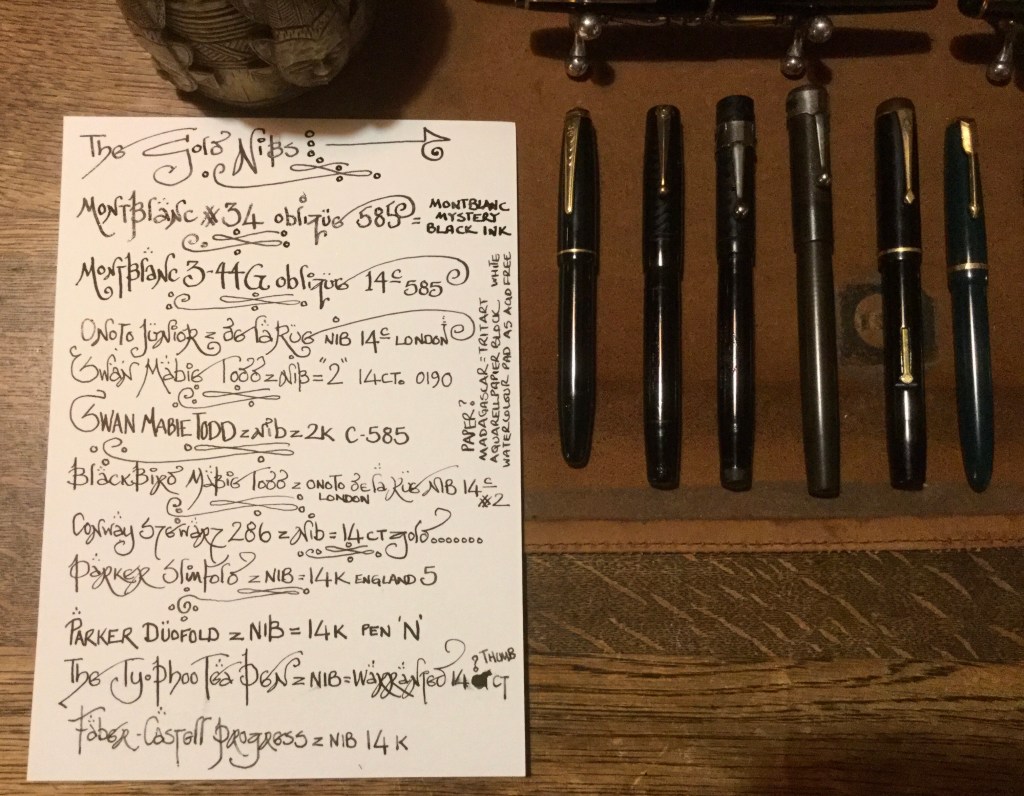 The Gold Nibs
MontBlanc № 34 oblique 585 =
MONTBLANC
MYSTERY
BLACK INK
MontBlanc 3-44G oblique 14c 585
ONOTO JÜNIOR z De la Rüe NIB 14c LONDON
Swan Mabie Todd z NiB = "2" 14CT. 0190
SWAN MABIE TODD z Nib z 2K C-585
BlackBird Mabie Todd z ONOTO De la Rüe NIB 14c
LONDON
2
Conway Stewart 286 z Nib = 14 CT gold.......
PARKER Slimfold z NIB = 14K ENGLAND 5
PARKER DÜOFOLD z NIB = 14K PEN 'N'
The Ty.Phoo Tea Pen z NIB = Warranted 14 CT
? THUMB
Faber-Castell Progress z NIB 14 K
PAPER?
MADAGASCAR = TRITART
AQUARELLPAPIER BLOCK WHITE
WATERCOLOUR PAD AS ACID FREE